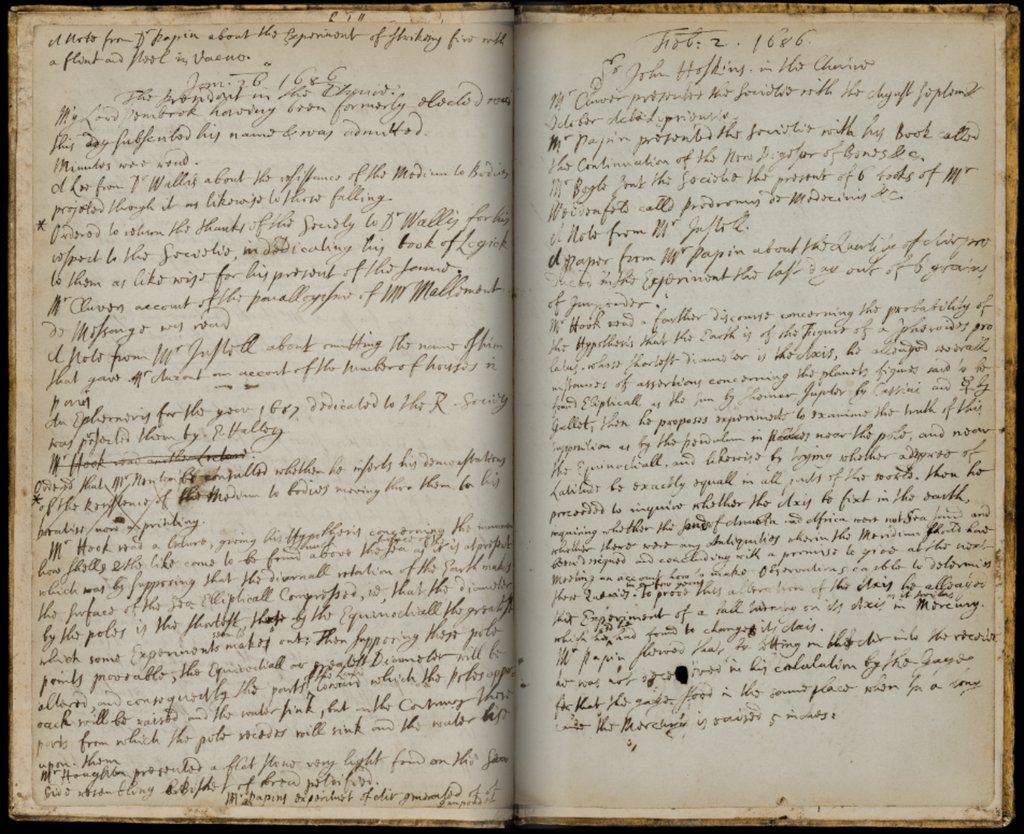 A Note from Dr Papin about the Experiment of Strikeing fire with
a flint and steel in Vacuo.
Jan: 26 1686
The President in the Chaire.
My Lord Pembrok haveing been formerly elected was
this day subscribed his name & was admitted.
Minutes were read.
A Lre from Dr Wallis about the resistance of the Medium to Bodies
projected through it as likewise to those falling.
* Ordered to return the thanks of the Society to Dr Wallis for his
respect to the Societie, in dedicating his book of Logick
to them as like wise for his present of the same.
Mr Cluvers account of the paralogisme of Mr Mallement
de Messange was read
A Note from Mr Justell about omitting the name of him
that gave Mr Auzout an account of the number of houses in
paris
An Ephemeris for the year 1687 dedicated to the R. Society
was presented them by E. Halley
Mr Hook read another lecture
Ordered that Mr Newton be consulted whether he inserts his demonstrations
* of the Resistence of the Medium to bodies moving thro them in his
treatise now printing.
Mr Hook read a lecture, giving his Hypothesis concerning the manner
how shells & the like come to be found above the sea as it is at present
which was by supposing that the diurnall rotation of the Earth makes
the surface of the sea Ellipticall Compressed, so, that the diameter
by the poles is the shortest, that by the Equinoctiall the greatest
which some Experiments seem to make out. Then supposing these pole
points moveable, the Equinoctiall or greatest Diameter will be
altered, and consequently the parts of the Land toward which the poles appro
oach will be raised and the water sink, but on the Contrary those
parts from which the pole recedes will sink and the water rise
upon them
Mr Houghton presented a flat stone very light found on the Sea
side resembling a Bisket of bread petrified.
Mr Papins experiment of air generated of of
gunpowder
Feb: 2. 1686.
Sr John Hoskins in the Chaire
Mr Cluver presented the Societie with the August September
October Acta Lipsiensia
Mr Papin presented the Societie with his Book called
the Continuation of the New Digester of Bones &c.
Mr Boyle sent the Societie the present of 6 books of Mr
Weidenfelts calld prodromus de Medecinis &c.
A Note from Mr Justell.
A paper from Mr Papin about the Quantity of air pro
duced in the Experiment the last day out of 6 grains
of Gunpouder
Mr Hook read a further discourse concerning the probability of
the Hypothesis that the Earth is of the figure of a spheroides pro
latus, whose shortest diameter is the Axis, he alledged severall
instances of assertions concerning the planets figures said to be
found Ellipticall as the sun by Jupiter by Cassini and by
Gallet, then he proposes experiments to examine the truth of this
supposition as by the pendulum in places near the pole, and near
the Equinoctiall, and likewise by trying whether a degree of
Latitude be exactly equall in all parts of the world. then he
proceeded to inquire whether the Axis be fixt in the earth,
requiring whether the sands of Arabia and Africa were not sea sand and
whether there were any Antiquities wherin the Meridian should have
been designed and concluding with a promise to give at the next
Meeting an account how to make Observations capable to determin
these Queries. To prove this alteration of the Axis he alledges
the Experiment of a ball turning on its Axis in Mercury.
which had and found to change its Axis.
Mr Papin shewed that by letting in the Air into the receiver
he was not in his calculation by the Gage
for that the gage stood in the same place when in a long
cane the Mercury is raised 5 inches: